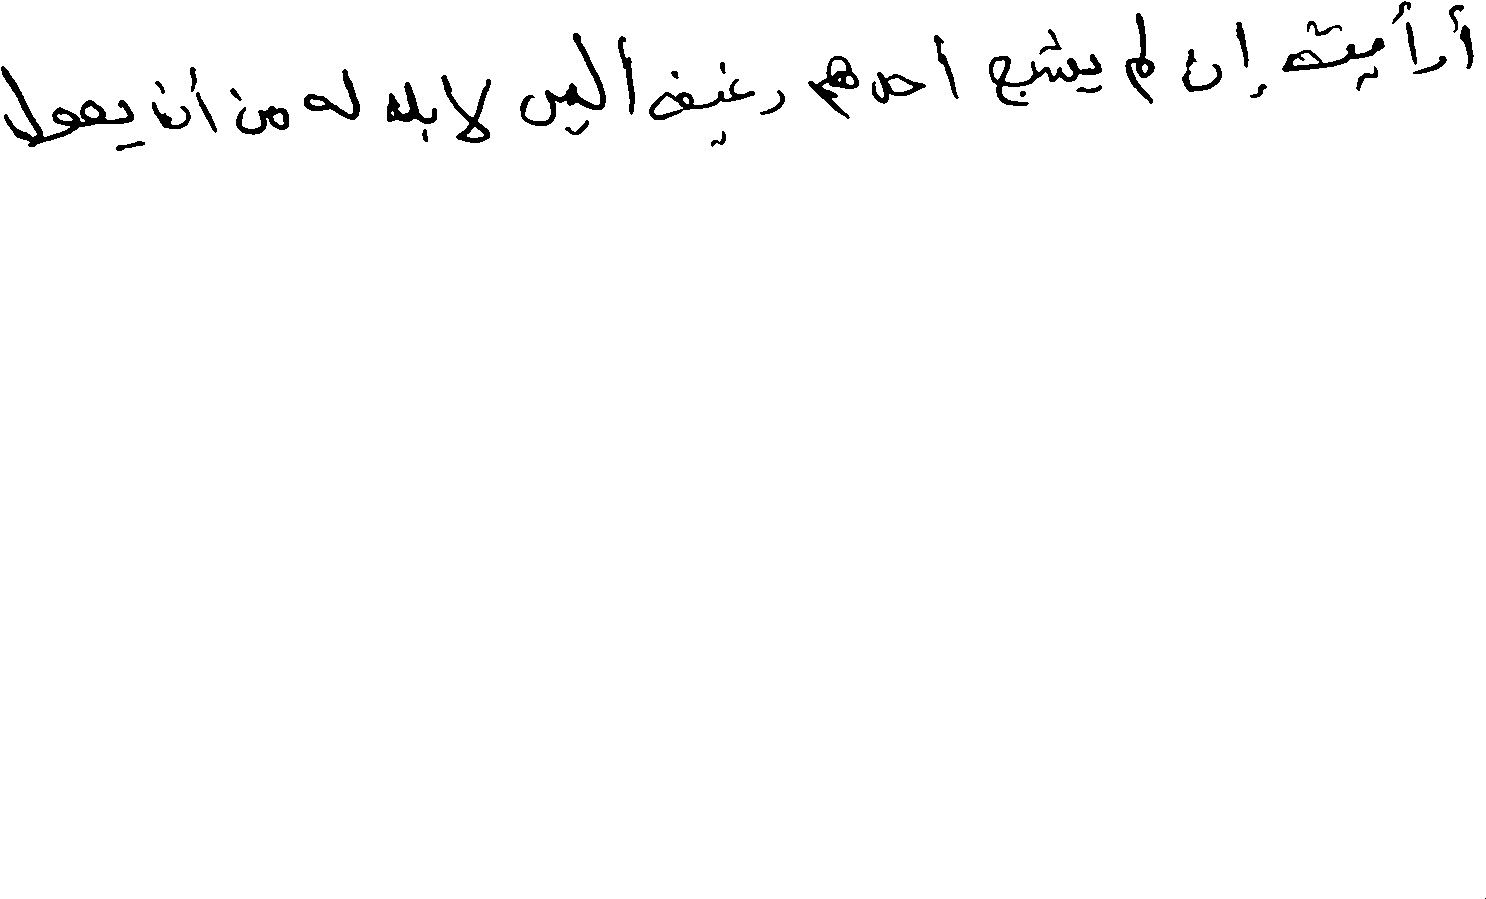 أرأيت إن لم يشبع احدهم رغيف أليس لا بد له من أن يعول